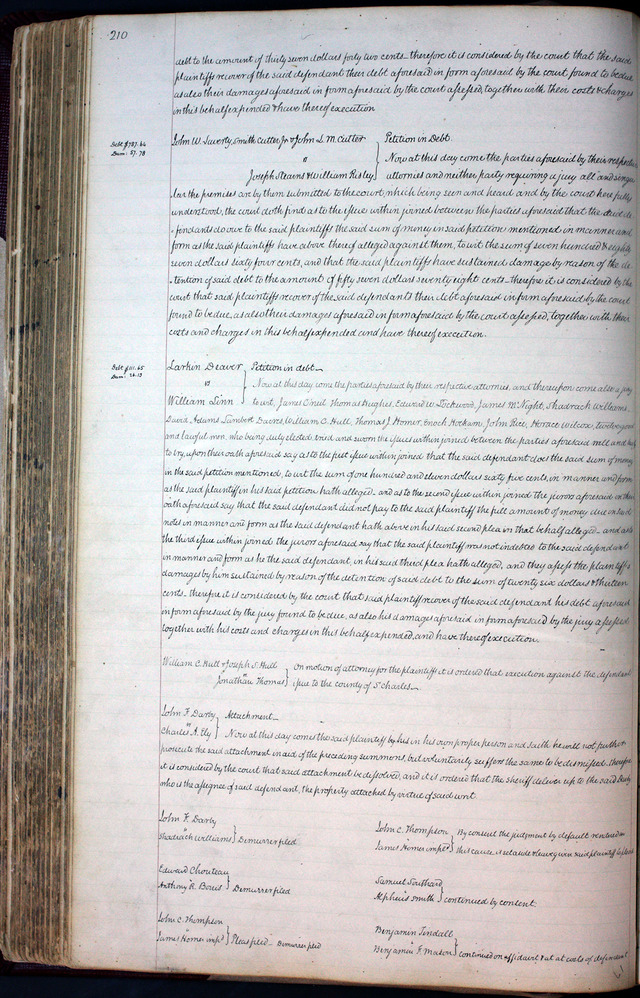 210
debt to the amount of thirty seven dollars forty two cents therefore it is considered by the court that the said
plaintiffs recover of the said defendant their debt aforesaid in form aforesaid by the court found to be due
as also their damages aforesaid in form aforesaid by the court assessed, together with their costs & charges
in this behalf expended & have thereof execution
Debt $787.64
Dam: 57.78
John W. Smith Cutter Jr & John L. M. Cutter
vs
Joseph Stearns & William Risley
Petition in Debt
Now at this day come the parties aforesaid by their respective
attornies and neither party requiring a jury all and singu
lar the premises are by them submitted to the court, which being seen and heard and by the court here fully
understood, the court doth find as to the issue within joined between the parties aforesaid that the said de
fendants do owe to the said plaintiffs the said sum of money in said petition mentioned in manner and
form as the said plaintiffs have above thereof alleged against them, to wit the sum of seven hundred & eighty
seven dollars sixty four cents, and that the said plaintiffs have sustained damage by reason of the de
tention of said debt to the amount of fifty seven dollars seventy eight cents therefore it is considered by the
court that said plaintiffs recover of the said defendants their debt aforesaid in form aforesaid by the court
found to be due, as also their damages aforesaid in form aforesaid by the court assessed, together with their
costs and charges in this behalf expended and have thereof execution.
Debt $111.65
Dam: 26.13
Larkin Deaver
vs
William Linn
Petition in debt
Now at this day come the parties aforesaid by their respective attornies, and thereupon come also a jury
to wit, James O'neil Thomas Hughes, Edward W. Lockwood, James McNight, Shadrach Williams,
David Adams Lambert William C. Hull, Thomas J Homer, Enoch John Rice, Horace Wilcox, twelve good
and lawful men, who being duly elected, tried and sworn the issues within joined between the parties aforesaid well and truly
to try, upon their oath aforesaid say as to the first issue within joined that the said defendant does the said sum of money
in the said petition mentioned, to wit the sum of one hundred and eleven dollars sixty five cents, in manner and form
as the said plaintiff in his said petition hath alleged and as to the second issue within joined the jurors aforesaid on their
oath aforesaid say that the said defendant did not pay to the said plaintiff the full amount of money due on said
notes in manner and form as the said defendant hath above in his said second plea in that behalf alleged and as to
the third issue within joined the jurors aforesaid say that the said plaintiff was not indebted to the said defendant
in manner and form as he the said defendant, in his said third plea hath alleged, and they assess the plaintiffs
damages by him sustained by reason of the detention of said debt to the sum of twenty six dollars & thirteen
cents. therefore it is considered by the court that said plaintiff recover of the said defendant his debt aforesaid
in form aforesaid by the jury found to be due, as also his damages aforesaid in form aforesaid by the jury assessed
together with his costs and charges in this behalf expended, and have thereof execution.
William C. Hull & Joseph S. Hull
vs
Jonathan Thomas
on motion of attorney for the plaintiff it is ordered that execution against the defendant
issue to the county of St Charles
John F. Darby
vs
Charles A. Ely
Attachment
Now at this day comes the said plaintiff by his in his own proper person and saith he will not further
prosecute the said attachment in aid of the preceding summons, but voluntarily suffers the same to be dismissed. therefore
it is considered by the court that said attachment be dissolved, and it is ordered that the sheriff deliver up to the said Darby
who is the assignee of said defendant, the property attached by virtue of said writ.
John F Darby
vs
Shadrach Williams
Demurrer filed
John C. Thompson
vs
James Homer impd
By consent the judgment by default rendered in
this cause is set aside & leave given said plaintiff to plead
Edward Chouteau
vs
Anthony R. Bouis
Demurrer filed
Samuel Southard
vs
Alpheus Smith
continued by consent
John C. Thompson
vs
James Homer impd
Pleas filed Demurrer filed
Benjamin Tindall
vs
Benjamin F. Mason
continued on affidavit & at costs of defendant